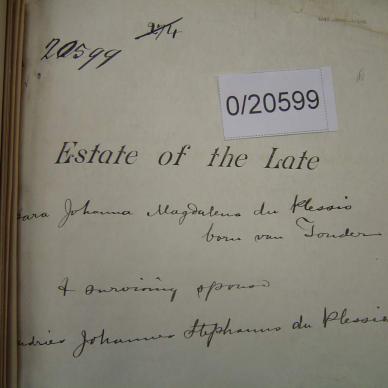 20599
274
0/20599
Estate of the Late
Sara Johanna Magdalena du Plessis
born van Tonder
& surviving spouse
Andries Johannes Stephanus du Plessis